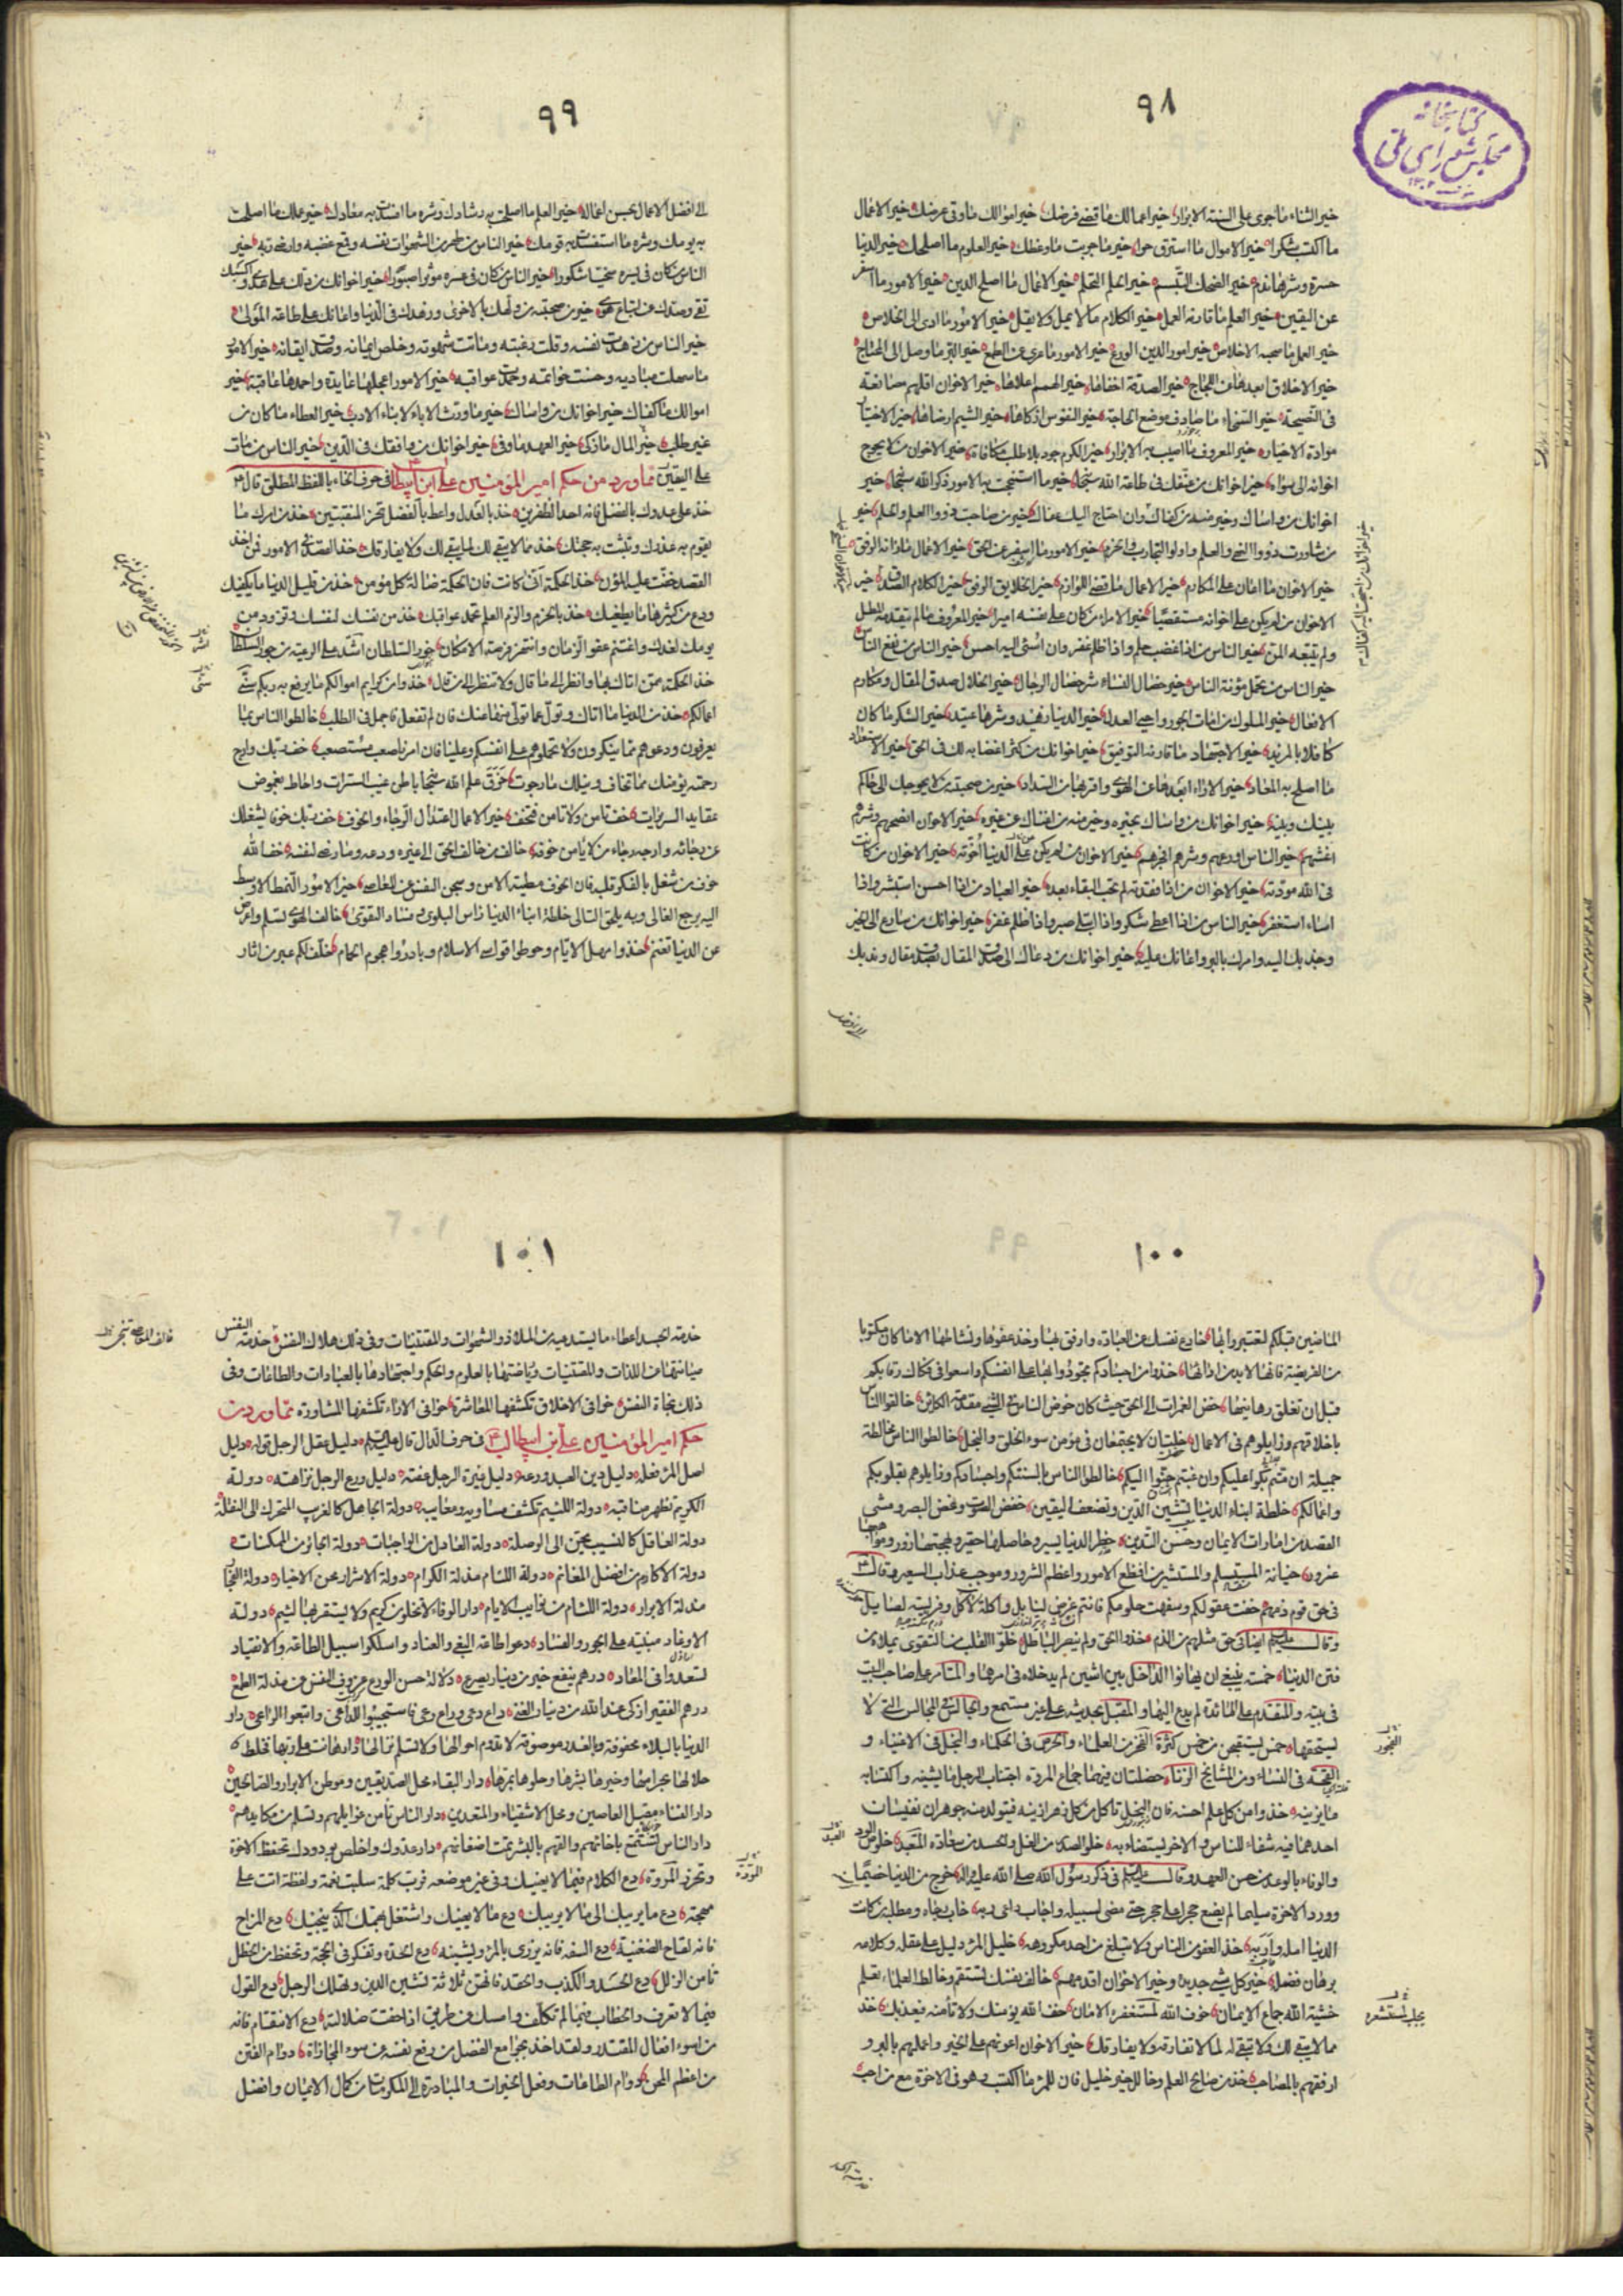 ٩٨
كتابخانه
مجلس شورای ملی
خير الثناء ما جرى على السنة الابرار خير اعمالك ما قضى فرضك خير اموالك ما وقى عرضك خير الاعمال
ما اكتسب شكرا خير الاموال ما استرق حرا خير ما جربت ما وعظك خير العلوم ما اصلحك خير الدنيا
حسرة وشرها ندم خير الضحك التبسم خير الحلم التحلم خير الاعمال ما اصلح الدين خير الامور ما اسفر
عن اليقين خير العلم ما قارنه العمل خير الكلام ما لا يمل ولا يقل خير الامور ما ادى الى الخلاص
خير العمل ما صحبه الاخلاص خير امور الدين الورع خير الامور ما عرى عن الطمع خير البر ما وصل الى المحتاج
خير الاخلاق ابعدها عن اللجاج خير الصدقة اخفاها خير الهمم اعلاها خير الاخوان اقلهم مصانعة
فى النصيحة خير السخاء ما صادف موضع الحاجة خير النفوس ازكاها خير الشيم ارضاها خير الاختيار
موادة الاخيار خير المعروف ما اصيب به الابرار خير الكرم جود بلا طلب مكافاة خير الاخوان من لا يحوج
اخوانه الى سواه خير اخوانك من عنفك فى طاعة الله سبحانه خير ما استنجحت به الامور ذكر الله سبحانه خير
اخوانك من واساك وخير منه من كفاك وان احتاج اليك عفاك خير من صاحبت ذووا العلم والحلم خير
من شاورت ذووا النهى والعلم واولوا التجارب والحزم خير الامور ما اسفر عن الحق خير الاعمال ما زانه الرفق
خير الاخوان ما اعان على المكارم خير الاعمال ما قضى اللوازم خير الخلايق الرفق خير الكلام الصدق خير
الاخوان من لم يكن على اخوانه مستقصيا خير الامراء من كان على نفسه اميرا خير المعروف ما لم يتقدمه المطل
ولم يتبعه المن خير الناس من اذا اغضب حلم واذا ظلم غفر وان اسئى اليه احسن خير الناس من نفع الناس
خير الناس من تحمل مؤنة الناس خير خصال النساء شر خصال الرجال خير الخلال صدق المقال ومكارم
الافعال خير الملوك من امات الجور واحيى العدل خير الدنيا زهيد وشرها عتيد خير الشكر ما كان
كافلا بالمزيد خير الاجتهاد ما قارنه التوفيق خير اخوانك من كثر اغضابه لك فى الحق خير الاستعداد
ما اصلح به المعاد خير الاراء ابعدها عن الهوى واقربها من السداد خير من صحبته من لا يحوجك الى حاكم
بينك وبينه خير اخوانك من واساك بخيره وخير منه من اغناك عن غيره خير الاخوان انصحهم وشرهم
اغشهم خير الناس اورعهم وشرهم افجرهم خير الاخوان من لم يكن على الدنيا اخوته خير الاخوان من كانت
فى الله مودته خير الاخوان من اذا فقدته لم تحب البقاء بعده خير العباد من اذا احسن استبشر واذا
اساء استغفر خير الناس من اذا اعطى شكر واذا ابتلى صبر واذا ظلم غفر خير اخوانك من سارع الى الخير
وجذبك اليه وامرك بالبر واعانك عليه خير اخوانك من دعاك الى صدق المقال بصدق مقاله وندبك
٩٩
الى افضل الاعمال بحسن اعماله خير العلم ما اصلحت به رشادك وشره ما افسدت به معادك خير عملك ما اصلحت
به يومك وشره ما استفسدت به قومك خير الناس من طهر من الشهوات نفسه وقمع غضبه وارضى ربه خير
الناس من كان فى يسره سخيا شكورا خير الناس من كان فى عسره مؤثرا صبورا خير اخوانك من دلك على هدى واكسبك
تقى وصدك عن اتباع هوى خير من صحبته من ولهك بالاخرى وزهدك فى الدنيا واعانك على طاعة المولى
خير الناس من زهدت نفسه وقلت رغبته وماتت شهوته وخلص ايمانه وصدق ايقانه خير الامور
ما سهلت مباديه وحسنت خواتمه وحمدت عواقبه خير الامور اعجلها عايدة واحمدها عاقبة خير
اموالك ما كفاك خير اخوانك من واساك خير ما ورث الاباء الابناء الادب خير العطاء ما كان من
غير طلب خير المال ما زكى خير العهد ما وفى خير اخوانك من وافقك فى الدين خير الناس من مات
على اليقين مما ورد من حكم امير المؤمنين على ابن ابيطالب فى حرف الخاء باللفظ المطلق قال ع
خذ على عدوك بالفضل فانه احد الظفرين خذ بالعدل واعط بالفضل تحز المنقبتين خذ من امرك ما
يقوم به عذرك وتثبت به حجتك خذ مما لا يبقى لك لما يبقى لك ولا يفارقك خذ القصد فى الامور فمن اخذ
القصد خفت عليه المؤن خذ الحكمة انى كانت فان الحكمة ضالة كل مؤمن خذ من قليل الدنيا ما يكفيك
ودع من كثيرها ما يطغيك خذ بالحزم والزم العلم تحمد عواقبك خذ من نفسك لنفسك وتزود من
يومك لغدك واغتنم عفو الزمان وانتهز فرصة الامكان جور السلطان اشد على الرعية من جور السلطان
خذ الحكمة ممن اتاك بها وانظر الى ما قال ولا تنظر الى من قال خذوا من كرايم اموالكم ما يرفع به ربكم سنى
اعمالكم خذ من الدنيا ما اتاك وتول عما تولى منها عنك فان لم تفعل فاجمل فى الطلب خالطوا الناس بما
يعرفون ودعوهم مما ينكرون ولا تحملوهم على انفسكم وعلينا فان امرنا صعب مستصعب خف ربك وارج
رحمته يؤمنك مما تخاف وينيلك ما رجوت خرق علم الله سبحانه باطن غيب السترات واحاط بغموض
عقايد السريرات خف تامن ولا تامن فتخف خير الاعمال اعتدال الرجاء والخوف خف ربك خوفا يشغلك
عن رجائه وارجه رجاء من لا يامن خوفه خالف من خالف الحق الى غيره ودعه وما رضى لنفسه خف الله
خوف من شغل بالفكر قلبه فان الخوف مطية الامن وسجن النفس عن المعاصى خير الامور النمط الاوسط
اليه يرجع الغالى وبه يلحق التالى خلطة ابناء الدنيا راس البلوى وفساد التقوى خالف الهوى تسلم واعرض
عن الدنيا تغنم خذوا مهل الايام وحوطوا قواصى الاسلام وبادروا هجوم الحمام خلف لكم عبر من اثار
١٠٠
الماضين قبلكم لتعتبروا بها خادع نفسك عن العبادة وارفق بها وخذ عفوها ونشاطها الا ما كان مكتوبا
من الفريضة فانها لا بد من ادائها خذوا من اجسادكم تجودوا بها على انفسكم واسعوا فى فكاك رقابكم
قبل ان تغلق رهاينها خض الغمرات الى الحق حيث كان خوض الناس فى الشىء مقدمة الكاين خالقوا الناس
باخلاقهم وزايلوهم فى الاعمال خلتان لا يجتمعان فى مؤمن سوء الخلق والبخل خالطوا الناس مخالطة
جميلة ان متم بكوا عليكم وان غبتم حنوا اليكم خالطوا الناس بالسنتكم واجسادكم وزايلوهم بقلوبكم
واعمالكم خلطة ابناء الدنيا تشين الدين وتضعف اليقين خفض الصوت وغض البصر ومشى
القصد من امارات الايمان وحسن التدين خطر الدنيا يسير وحاصلها حقير وبهجتها زور ومواهبها
غرور خيانة المستسلم والمستشير من افظع الامور واعظم الشرور وموجب عذاب السعير وقال ع
فى حق قوم ذمهم خفت عقولكم وسفهت حلومكم فانتم غرض لنابل واكلة لاكل وفريسة لصايل
وقال ع ايضا فى حق مثلهم من الذم خذلوا الحق ولم ينصروا الباطل خلو القلب من التقوى يملاه من
فتن الدنيا خمسة ينبغى ان يهانوا الداخل بين اثنين لم يدخلاه فى امرهما والمتامر على صاحب البيت
فى بيته والمتقدم على المائدة لم يدع اليها والمقبل بحديثه على غير مستمع والجالس فى المجالس التى لا
يستحقها خمس يستقبحن من خمس كثرة الفجر من العلماء والحرص فى الحكماء والبخل فى الاغنياء و
القحة فى النساء ومن المشايخ الزنا خصلتان فيهما جماع المروة اجتناب الرجل ما يشينه واكتسابه
ما يزينه خذوا من كل علم احسنه فان النحل تاكل من كل زهر ازينه فيتولد منه جوهران نفيسان
احدهما فيه شفاء للناس والاخر يستضاء به خلو الصدر من الغل والحسد من سعادة المتعبد خلوص الود
والوفاء بالوعد من حسن العهد وقال ع فى ذكر رسول الله صلى الله عليه واله خرج من الدنيا خميصا
وورد الاخرة سليما لم يضع حجرا على حجر حتى مضى لسبيله واجاب داعى ربه خاب رجاء ومطلبه من كانت
الدنيا امله واربه خذ العفو من الناس ولا تبلغ من احد مكروهه خليل المرء دليل على عقله وكلامه
برهان فضله خير كل شىء جديده وخير الاخوان اقدمهم خالف نفسك تستقم وخالط العلماء تعلم
خشية الله جماع الايمان خوف الله لمستغفره الامان خف الله يؤمنك ولا تأمنه فيعذبك خذ
مما لا يبقى لك ولا تبقى له لما لا تفارقه ولا يفارقك خير الاخوان اعونهم على الخير واعملهم بالبر و
ارفقهم بالمصاحب خذ من صالح العلم وخالل خير خليل فان للمرء ما اكتسب وهو فى الاخرة مع من احب
١٠١
خدمة الجسد اعطاءه ما يستدعيه من الملاذ والشهوات والمقتنيات وفى ذلك هلاك النفس خدمة النفس
صيانتها عن اللذات والمقتنيات ورياضتها بالعلوم والحكم واجتهادها بالعبادات والطاعات وفى
ذلك نجاة النفس خوافى الاخلاق تكشفها المعاشرة خوافى الاراء تكشفها المشاورة مما ورد من
حكم امير المؤمنين على بن ابيطالب ع فى حرف الدال قال ع دليل عقل الرجل قوله دليل
اصل المرء فعله دليل دين العبد ورعه دليل غيرة الرجل عفته دليل ورع الرجل نزاهته دولة
الكريم تظهر مناقبه دولة اللئيم تكشف مساويه ومعايبه دولة الجاهل كالغريب المتحرك الى النقلة
دولة العاقل كالنسيب يحن الى الوصلة دولة العادل من الواجبات دولة الجائر من الممكنات
دولة الاكارم من افضل المغانم دولة اللئام مذلة الكرام دولة الاشرار محن الاخيار دولة الفجار
مذلة الابرار دولة اللئام من نوايب الايام دار الوفاء لا تخلو من كريم ولا يستقر بها لئيم دولة
الاوغاد مبنية على الجور والفساد دعوا طاعة البغى والعناد واسلكوا سبيل الطاعة والانقياد
لتسعدوا فى المعاد درهم ينفع خير من دينار يصرع دلالة حسن الورع عزوف النفس عن مذلة الطمع
درهم الفقير ازكى عند الله من دينار الغنى داع دعى وراع رعى فاستجيبوا للداعى واتبعوا الراعى دار
الدنيا بالبلاء محفوفة وبالغدر موصوفة لا تدوم احوالها ولا تسلم نزالها دار هانت على ربها فخلط
حلالها بحرامها وخيرها بشرها وحلوها بمرها دار البقاء محل الصديقين وموطن الابرار والصالحين
دار الفناء مقيل العاصين ومحل الاشقياء والمتعدين دار الناس تأمن غوايلهم وتسلم من مكايدهم
دار الناس تستمتع باخائهم والقهم بالبشر تمت اضغانهم دار عدوك واخلص لودودك تحفظ الاخوة
وتحرز المروة دع الكلام فيما لا يعنيك وفى غير موضعه فرب كلمة سلبت نعمة ولفظة اتت على
مهجة دع ما يريبك الى ما لا يريبك دع ما لا يعنيك واشتغل بمهمك الذى ينجيك دع المزاح
فانه لقاح الضغينة دع السفه فانه يزرى بالمرء ويشينه دع الحدة وتفكر فى الحجة وتحفظ من الخطل
تأمن الزلل دع الحسد والكذب والحقد فانهن ثلاثة تشين الدين وتهلك الرجل دع القول
فيما لا تعرف والخطاب فيما لم تكلف وامسك عن طريق اذا خفت ضلالته دع الانتقام فانه
من اسوء افعال المقتدر ولقد اخذ بجوامع الفضل من رفع نفسه عن سوء المجازاة دوام الفتن
من اعظم المحن دوام الطاعات وفعل الخيرات والمبادرة الى المكرمات من كمال الايمان وافضل